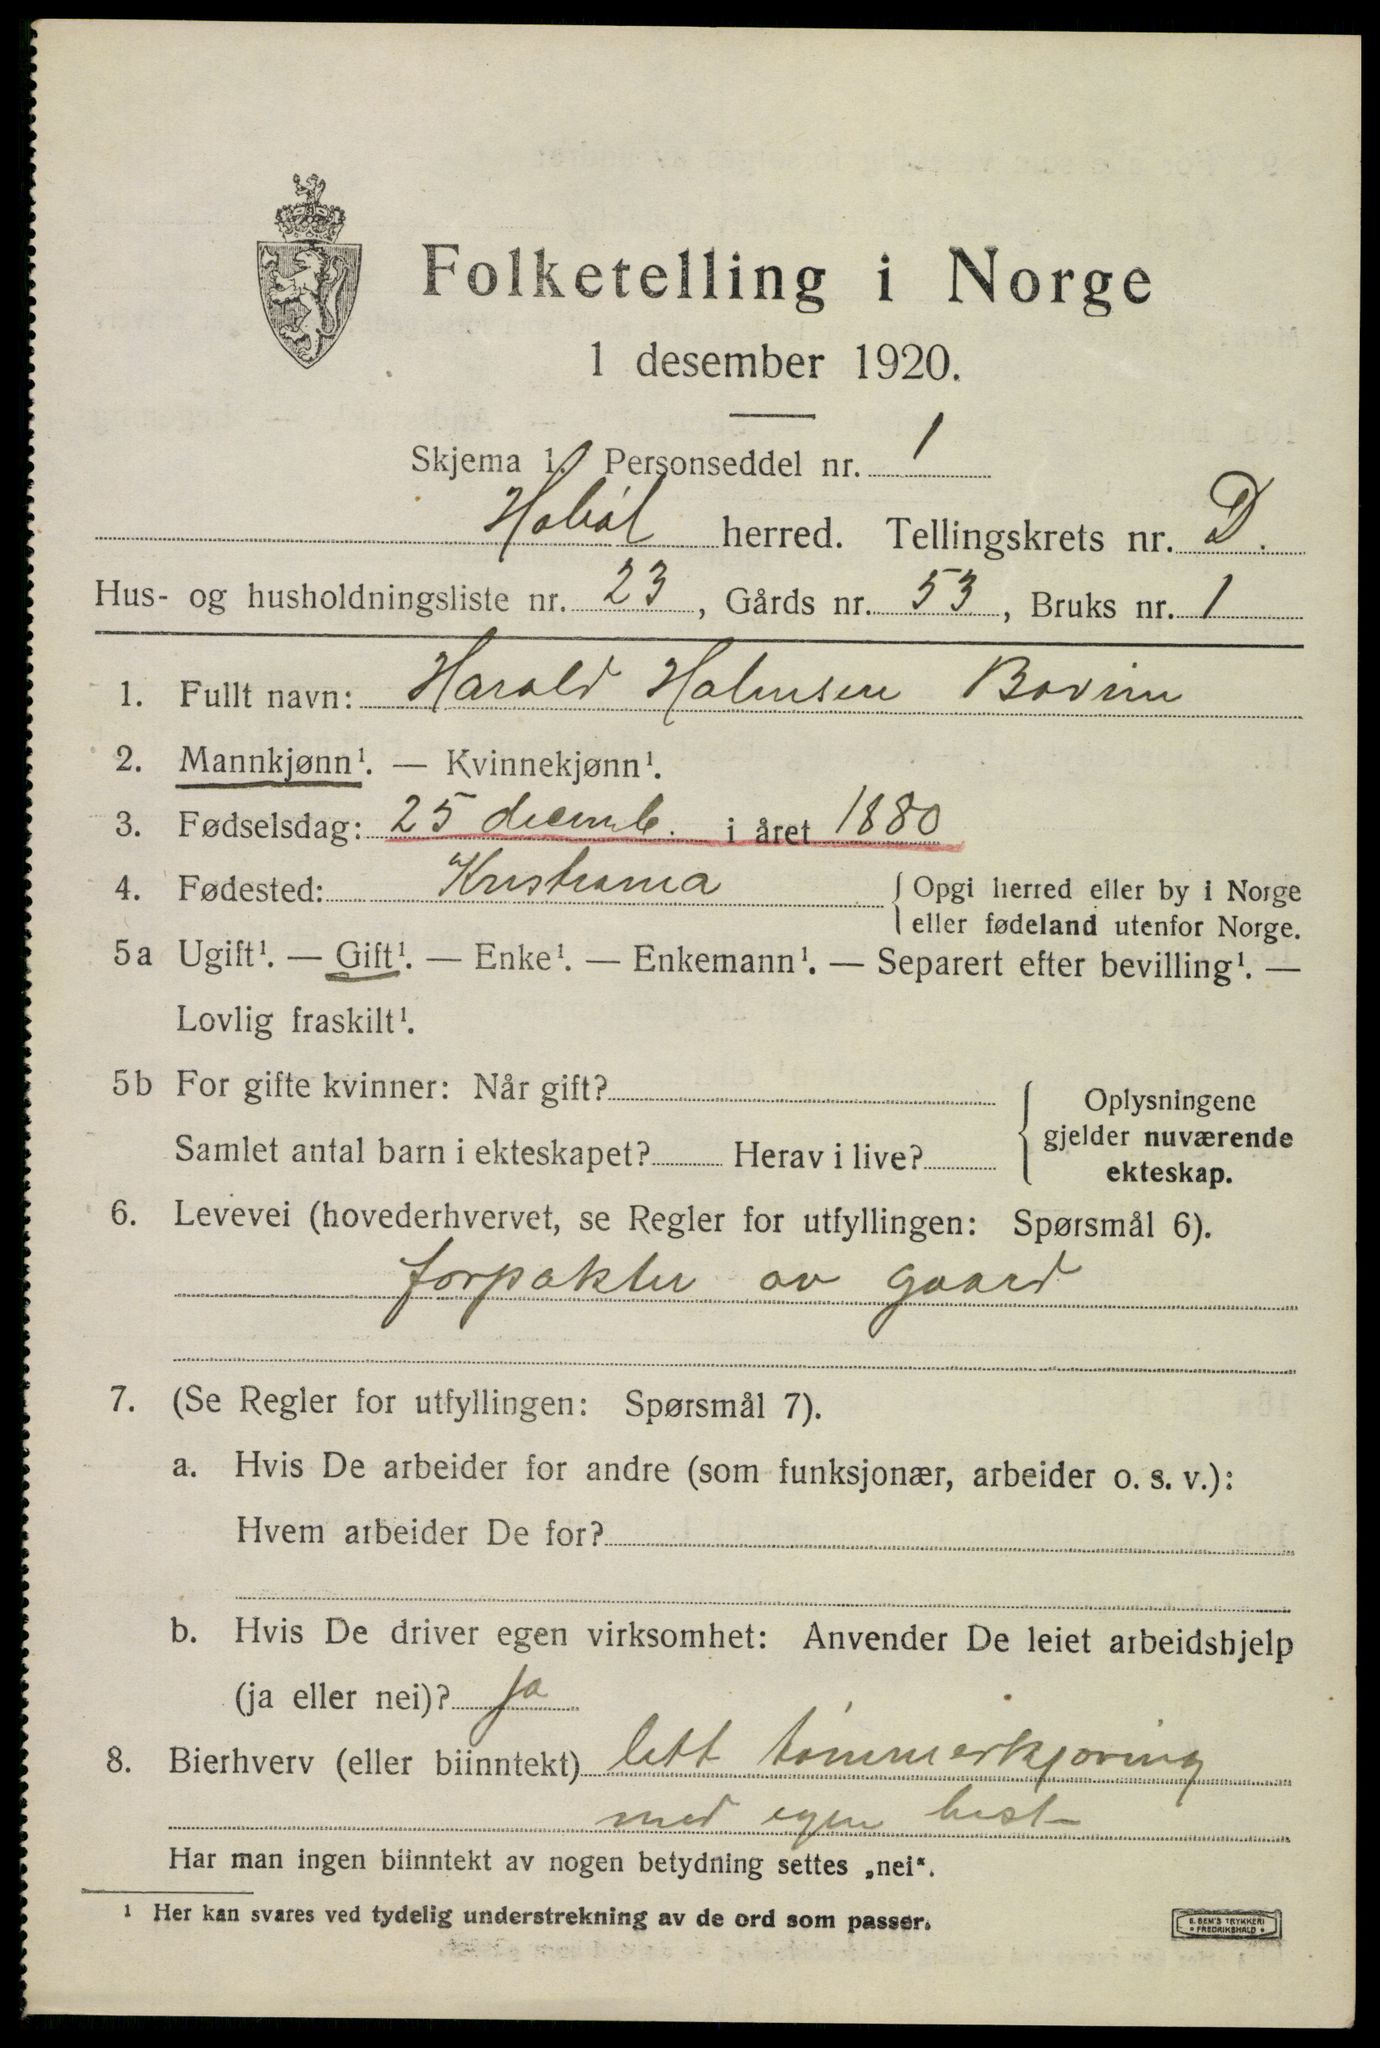 Folketelling i Norge
1 desember 1920.
Skjema 1. Personseddel nr. 1
Hobøl herred. Tellingskrets nr. D.
Hus- og husholdningsliste nr. 23, Gårds nr. 53, Bruks nr. 1
1. Fullt navn: Harald Holmsen Bovim
2. Mannkjønn¹. — Kvinnekjønn¹.
3. Fødselsdag: 25 decemb. i året 1880
4. Fødested: Kristiania { Opgi herred eller by i Norge
eller fødeland utenfor Norge.
5a Ugift¹. — Gift¹. — Enke¹. — Enkemann¹. — Separert efter bevilling¹. —
Lovlig fraskilt¹.
5b For gifte kvinner: Når gift? { Oplysningene
gjelder nuværende
Samlet antal barn i ekteskapet? Herav i live?
ekteskap.
6. Levevei (hovederhvervet, se Regler for utfyllingen: Spørsmål 6).
forpakter av gaard
7. (Se Regler for utfyllingen: Spørsmål 7).
a. Hvis De arbeider for andre (som funksjonær, arbeider o. s. v.):
Hvem arbeider De for?
b. Hvis De driver egen virksomhet: Anvender De leiet arbeidshjelp
(ja eller nei)? ja
8. Bierhverv (eller biinntekt) litt tømmerkjøring
med egen hest
Har man ingen biinntekt av nogen betydning settes „nei“.
¹ Her kan svares ved tydelig understrekning av de ord som passer.
E. SEM'S TRYKKERI
• FREDRIKSHALD •